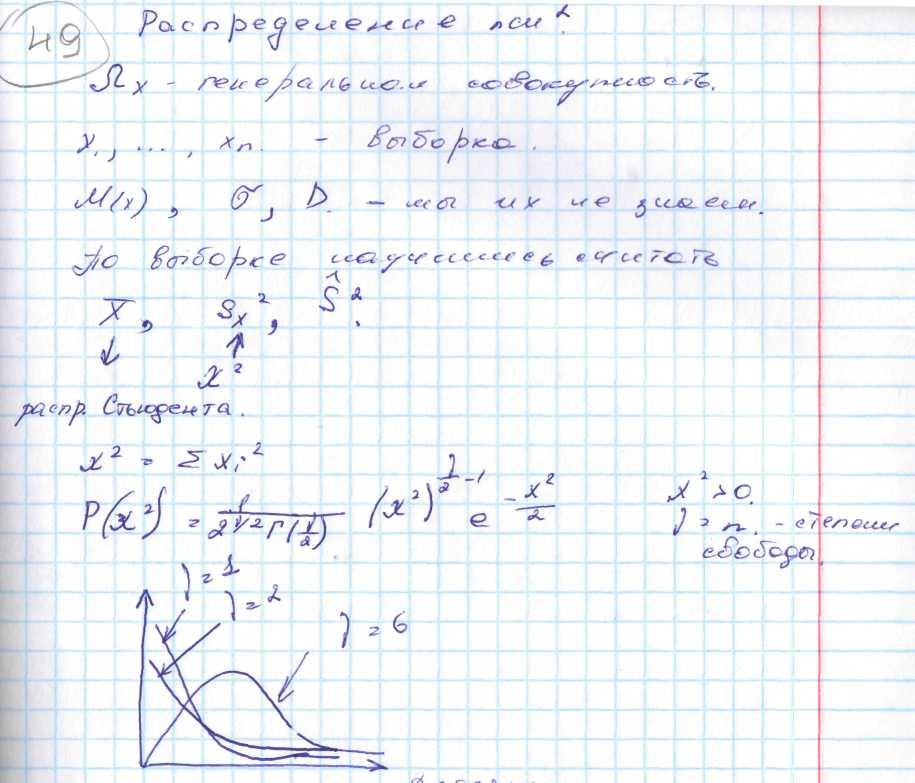 49
Распределение пси².
Ωx - генеральная совокупность.
x₁, ..., xn. - выборка.
M(x), σ, D. - мы их не знаем.
По выборке научились считать
X̅, Sx², Ŝ².
χ²
распр. Стьюдента.
χ² = Σ xi²
P(χ²) = 1/(2^(ν/2) Γ(ν/2)) (χ²)^(ν/2 - 1) e^(-χ²/2) χ² > 0.
ν = n. - степени
свободы.
ν = 1
ν = 2
ν = 6